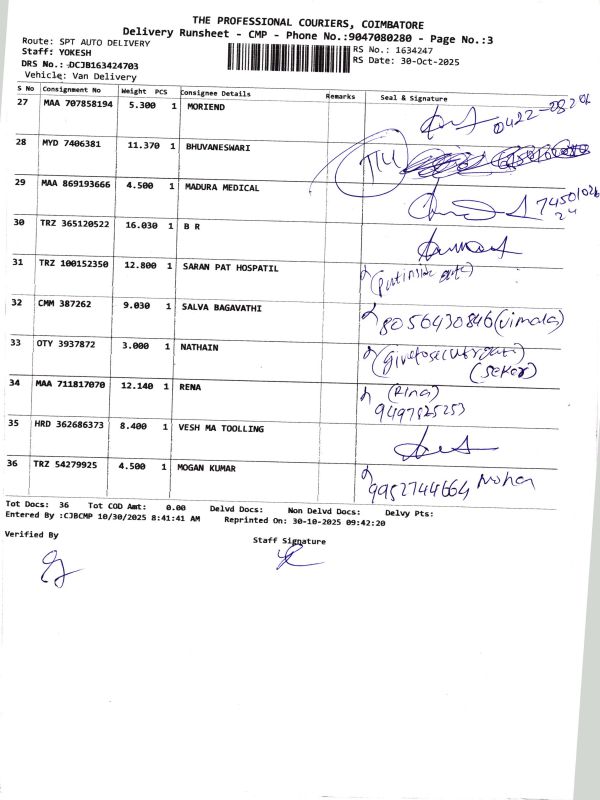 THE PROFESSIONAL COURIERS, COIMBATORE
Delivery Runsheet - CMP - Phone No.:9047080280 - Page No.:3
Route: SPT AUTO DELIVERY RS No.: 1634247
Staff: YOKESH RS Date: 30-Oct-2025
DRS No.: DCJB163424703
Vehicle: Van Delivery
S No Consignment No Weight PCS Consignee Details Remarks Seal & Signature
27 MAA 707858194 5.300 1 MORIEND
28 MYD 7406381 11.370 1 BHUVANESWARI
29 MAA 869193666 4.500 1 MADURA MEDICAL
30 TRZ 365120522 16.030 1 B R
31 TRZ 100152350 12.800 1 SARAN PAT HOSPATIL (put inside gate)
32 CMM 387262 9.030 1 SALVA BAGAVATHI 8056430846 (vimala)
33 OTY 3937872 3.000 1 NATHAIN
(sekar)
34 MAA 711817070 12.140 1 RENA (Rina)
9497825253
35 HRD 362686373 8.400 1 VESH MA TOOLLING
36 TRZ 54279925 4.500 1 MOGAN KUMAR 9952744664 Mohan
Tot Docs: 36 Tot COD Amt: 0.00 Delvd Docs: Non Delvd Docs: Delvy Pts:
Entered By :CJBCMP 10/30/2025 8:41:41 AM Reprinted On: 30-10-2025 09:42:20
Verified By Staff Signature